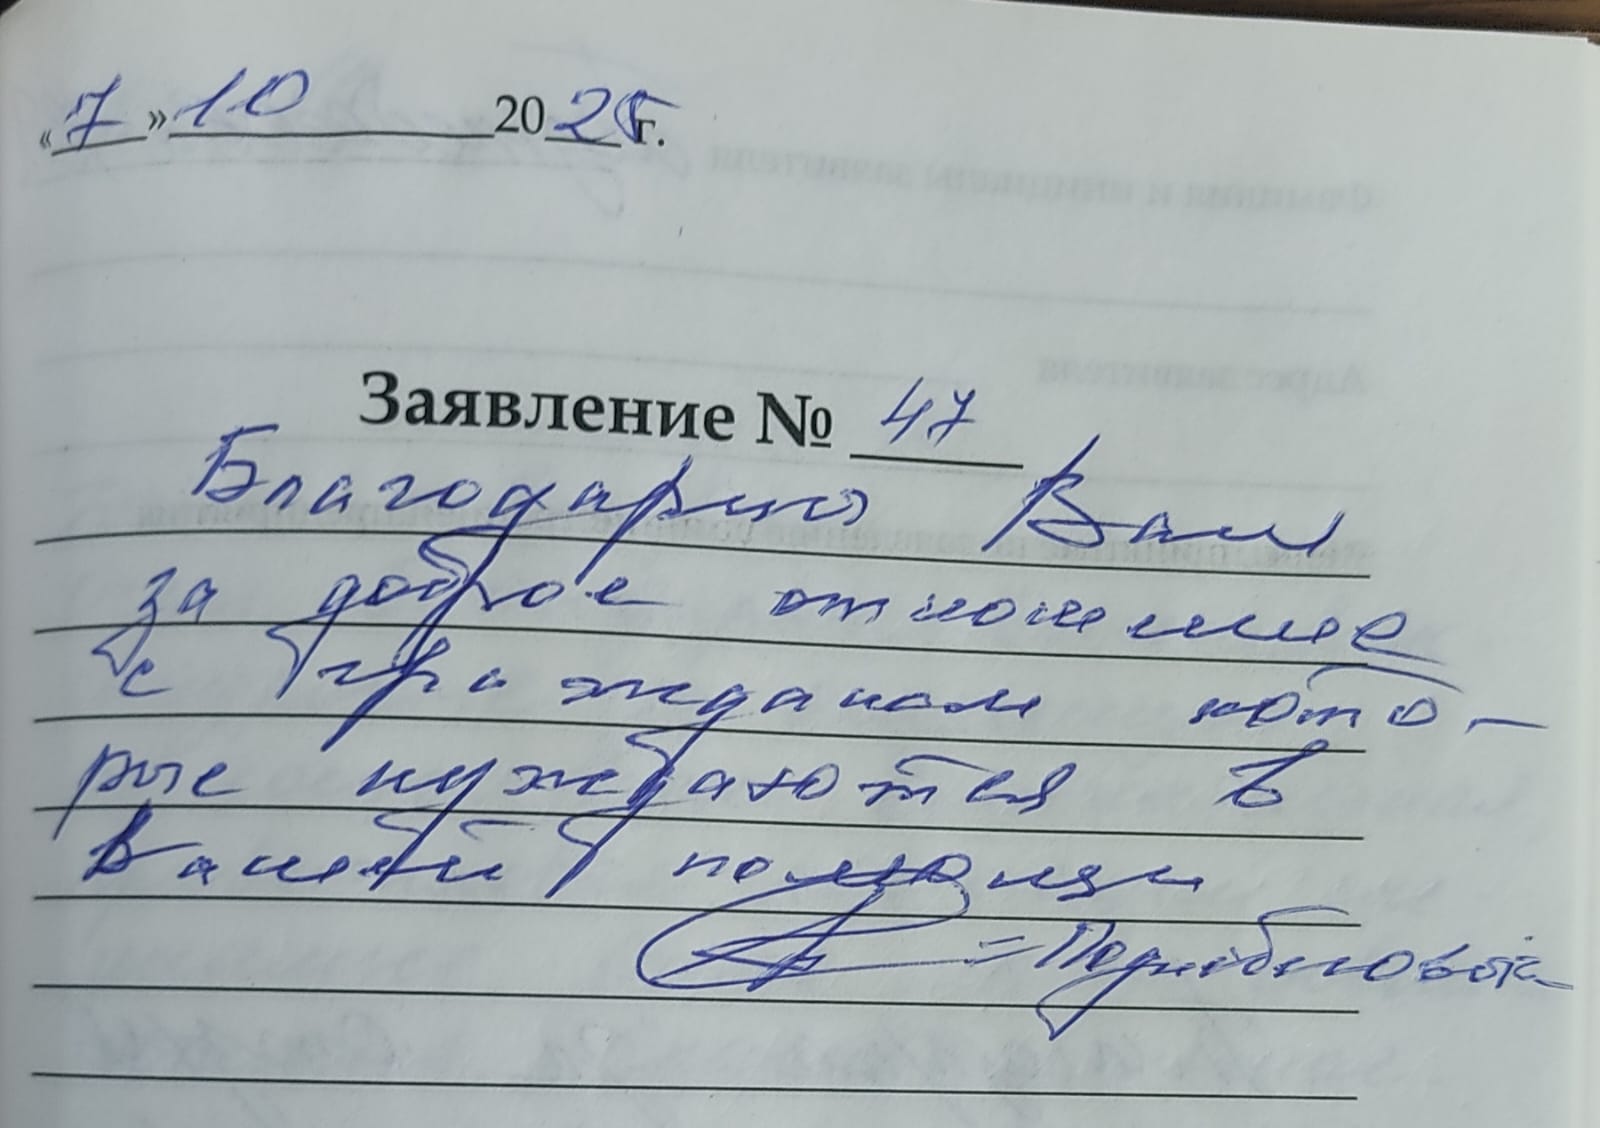 «7» 10 2025 г.
Заявление № 47
Благодарю Вам
за доброе отношение
с гражданам кото-
рые нуждаются в
вашей помощи